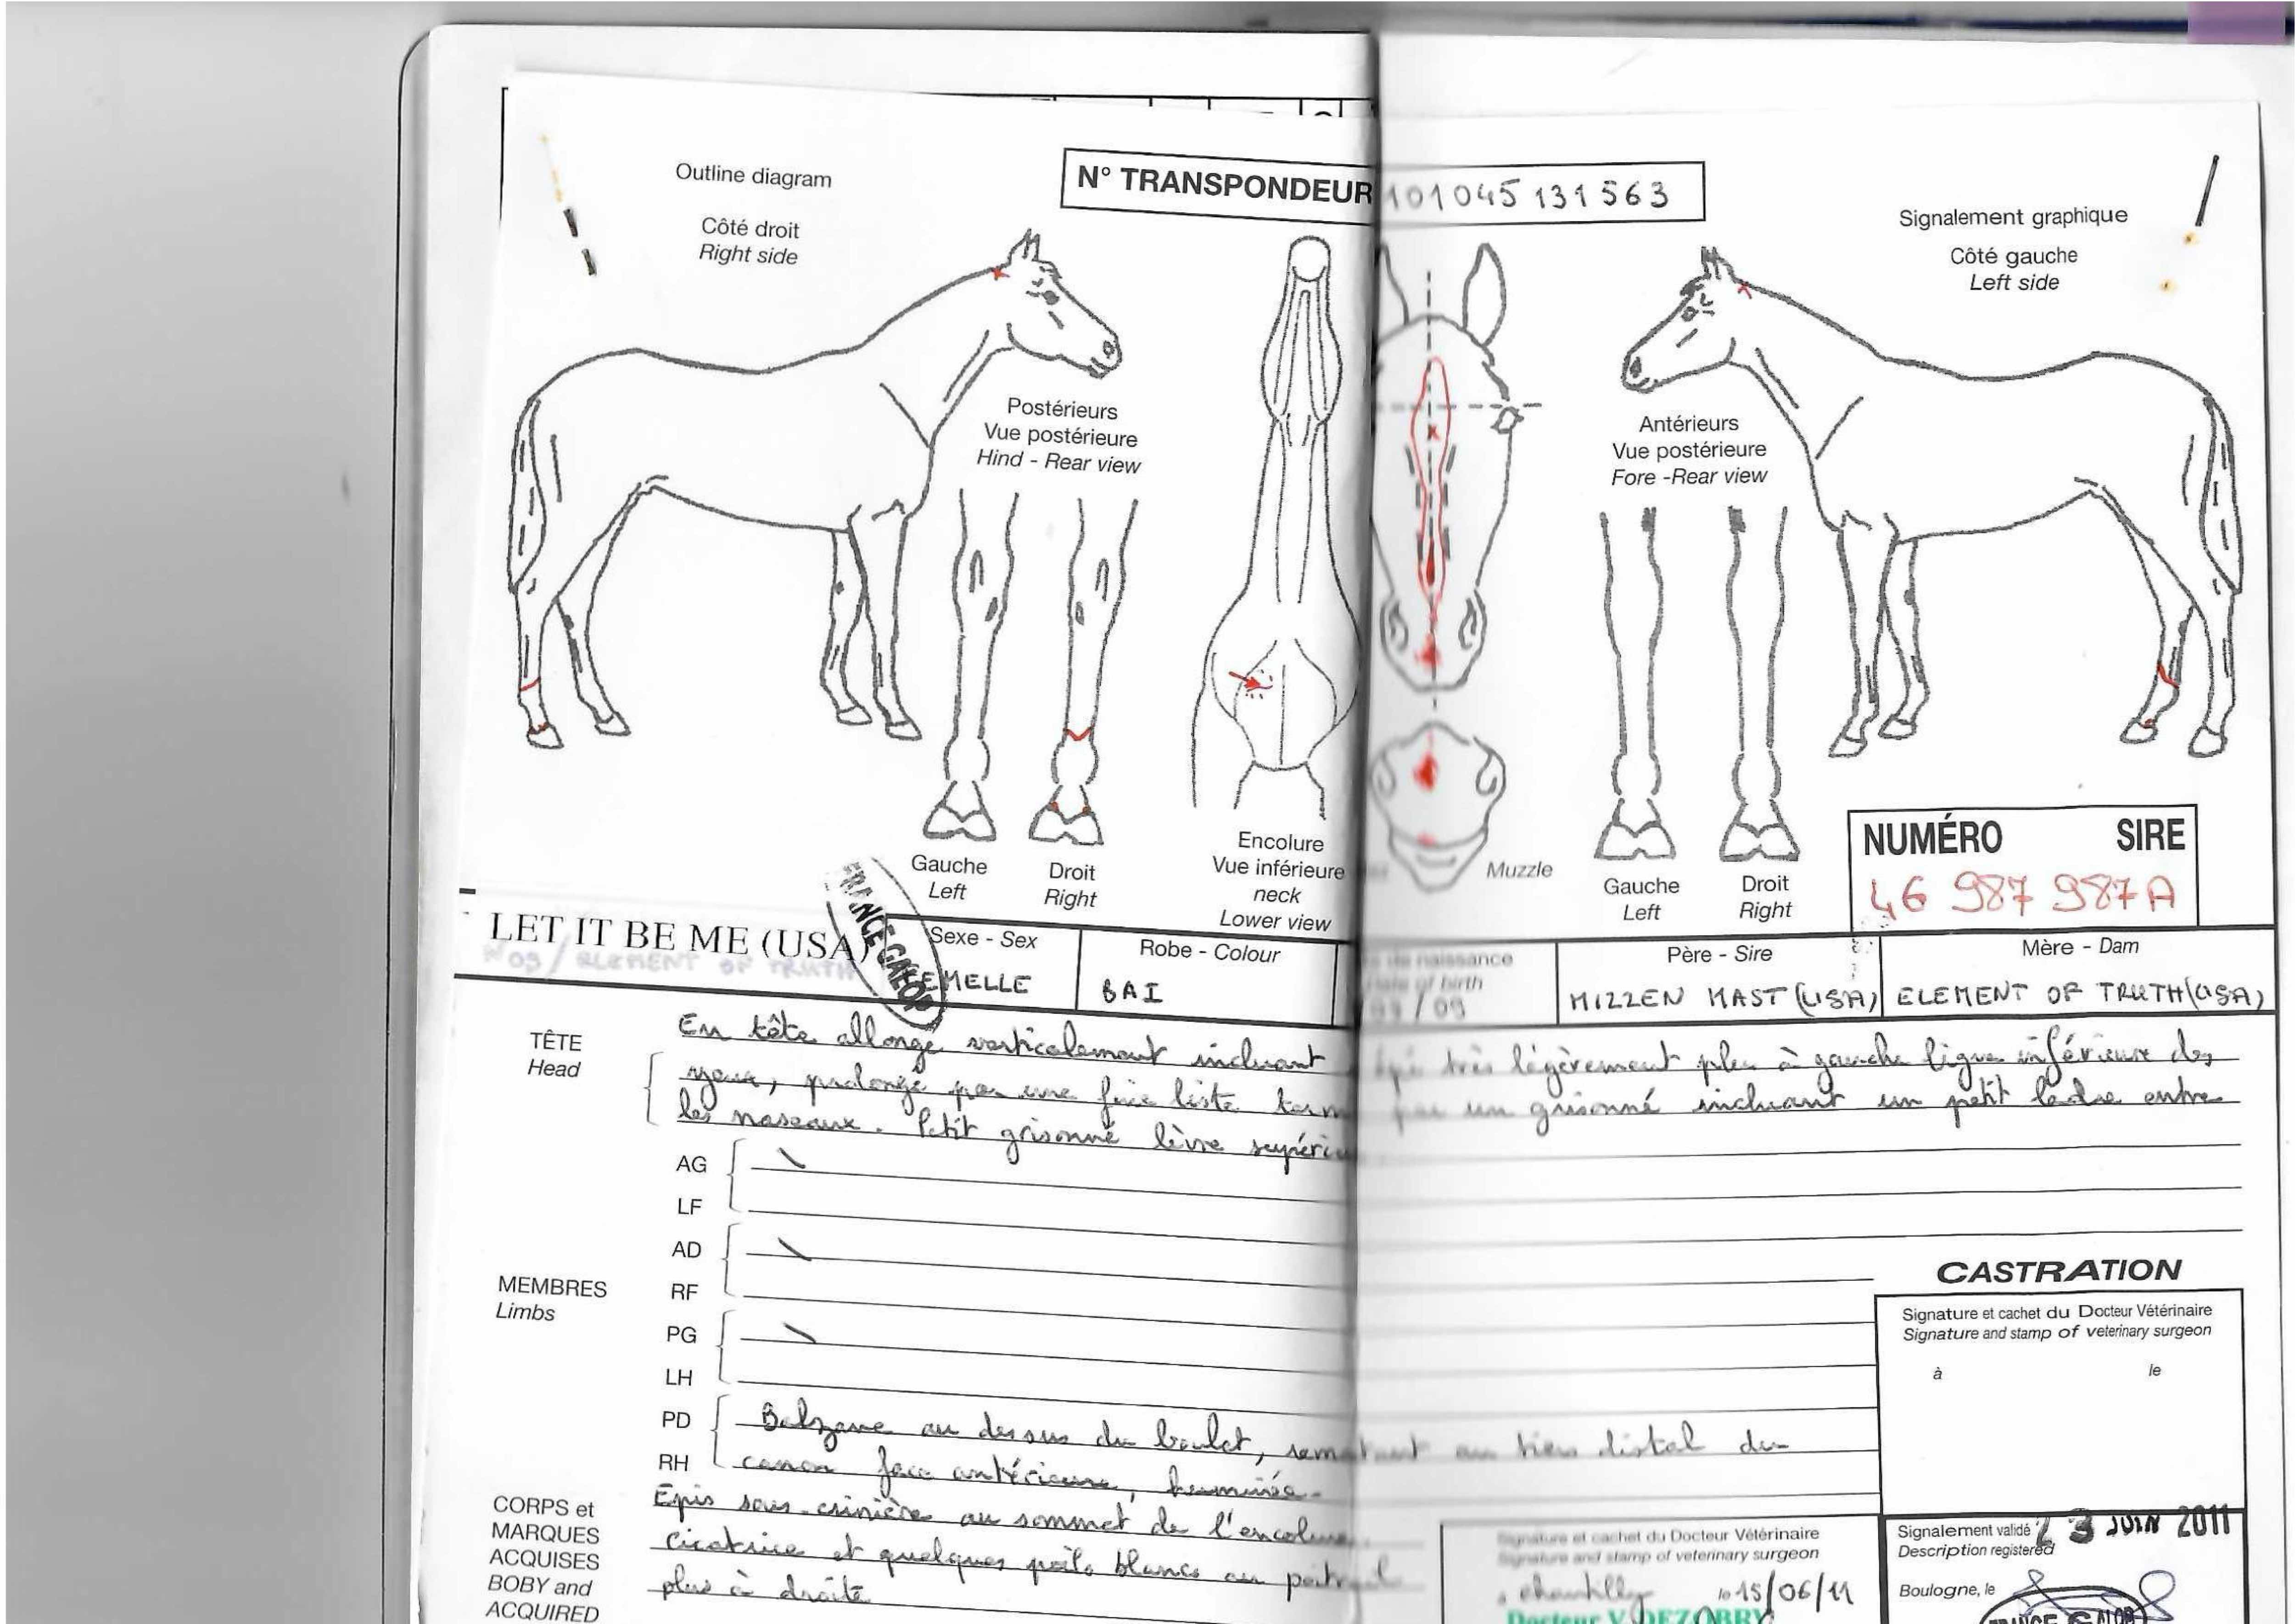 Outline diagram
Côté droit
Right side
N° TRANSPONDEUR 101045 131563
Signalement graphique
Côté gauche
Left side
Postérieurs
Vue postérieure
Hind - Rear view
Antérieurs
Vue postérieure
Fore -Rear view
Gauche
Left
Droit
Right
Encolure
Vue inférieure
neck
Lower view
Muzzle
Gauche
Left
Droit
Right
NUMÉRO SIRE
46 987 987 A
LET IT BE ME (USA)
N 09 / ELEMENT OF TRUTH
FRANCE GALOP
Sexe - Sex
EMELLE
Robe - Colour
BAI
de naissance
of birth
/ 09
Père - Sire
MIZZEN MAST (USA)
Mère - Dam
ELEMENT OF TRUTH (USA)
TÊTE
Head
En tête allongé verticalement incluant épi très légèrement plus à gauche ligne inférieure des
yeux, prolongé par une fine liste term par un grisonné incluant un petit ladre entre
les naseaux. Petit grisonné lèvre supérieu
MEMBRES
Limbs
AG
LF
AD
RF
PG
LH
PD
RH
Balzane au dessus du boulet, remontant au tiers distal du
canon face antérieure, herminée.
CORPS et
MARQUES
ACQUISES
BOBY and
ACQUIRED
Epis sous crinière au sommet de l'encolure.
Cicatrice et quelques poils blancs au poitrail
plus à droite
CASTRATION
Signature et cachet du Docteur Vétérinaire
Signature and stamp of veterinary surgeon
à le
Signature et cachet du Docteur Vétérinaire
Signature and stamp of veterinary surgeon
à chantilly le 15/06/11
Docteur V. DEZOBRY
Signalement validé
Description registered
23 JUIN 2011
Boulogne, le
FRANCE GALOP